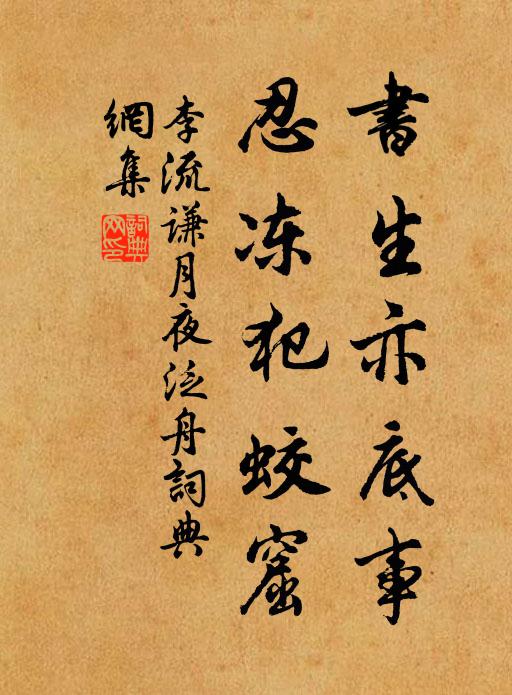 書生亦底事
忍冻犯蛟窟
李流谦月夜泛舟詞典
網集
詞典
网印